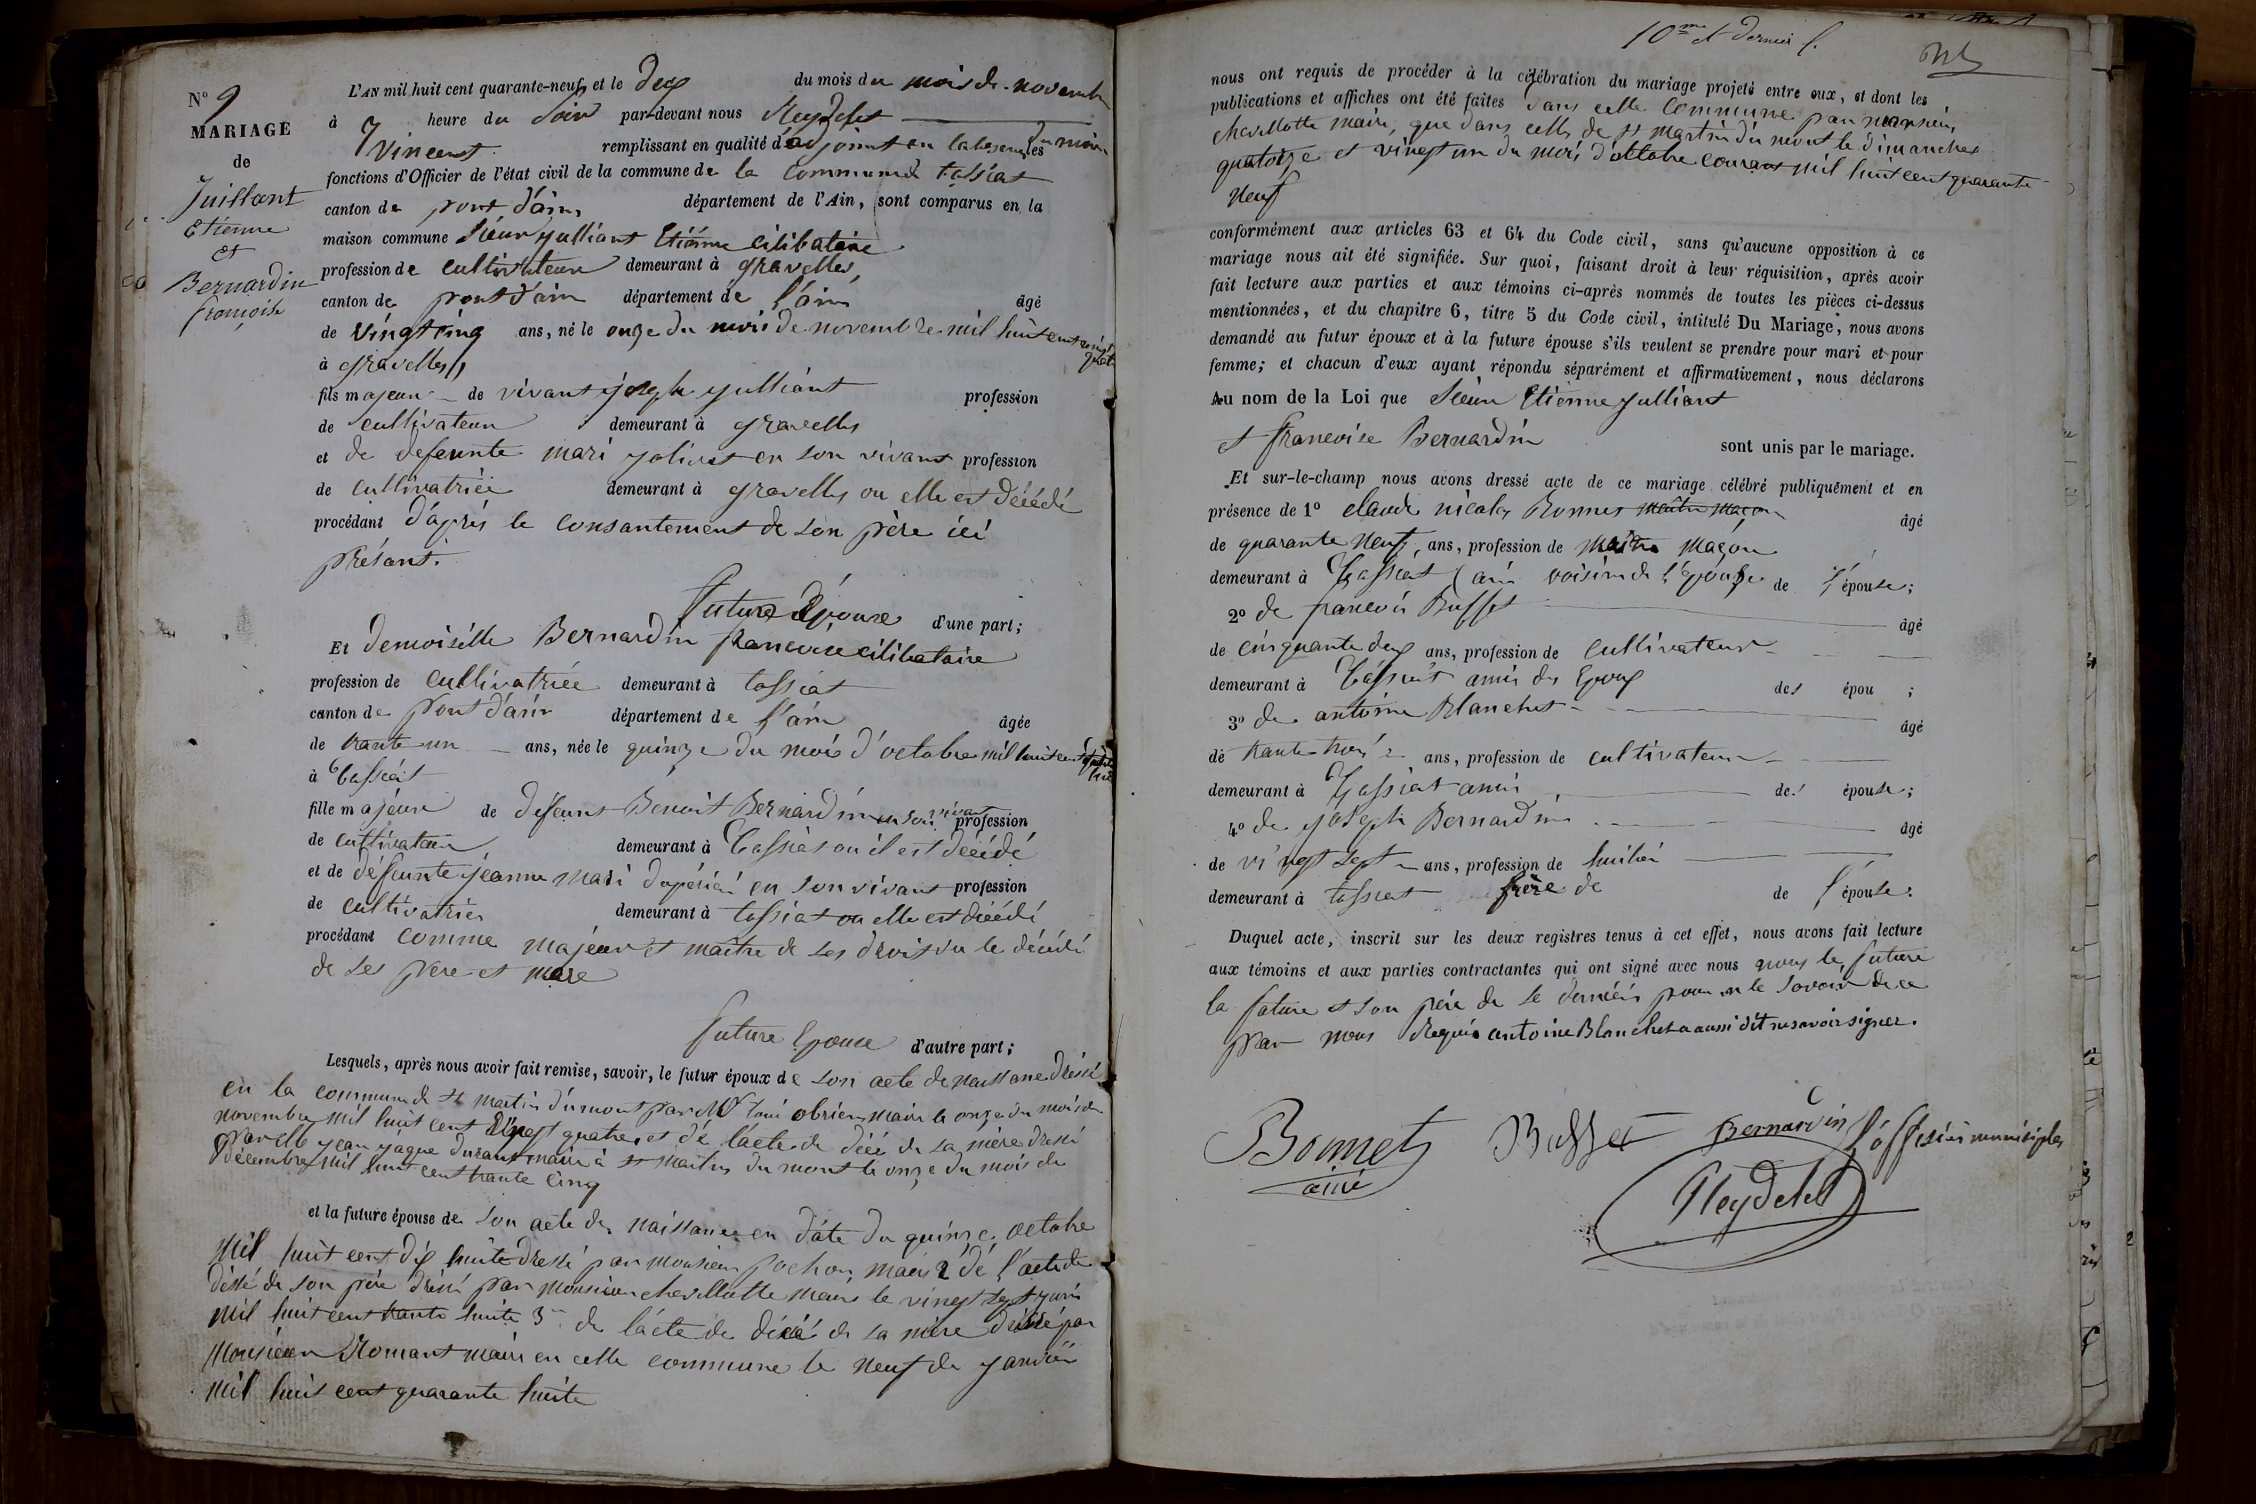 N° 9
MARIAGE
de
Juillant
Etienne
et
Bernardin
françoise
L'AN mil huit cent quarante-neuf, et le deux du mois du mois de novembre
à 7 heure du Soir par-devant nous Neydelet
Vincent remplissant en qualité d'adjoint en labesence du maire les
fonctions d'Officier de l'état civil de la commune de la commune de tossiat
canton de pont d'ain, département de l'Ain, sont comparus en la
maison commune Sieur julliant Etiénne célibataire
profession de cultivateur demeurant à gravelles,
canton de pont d'ain département de l'ain âgé
de vingt cinq ans, né le onze du mois de novembre mil huit cent vingt quatre
à gravelles
fils majeur de vivant joseph julliant profession
de cultivateur demeurant à gravelles
et de defeunte mari jolivet en son vivant profession
de cultivatrice demeurant à gravelles ou elle est décédé
procédant d'aprés le consantement de son père ici
présant.
future Epouse d'une part;
Et demoiselle Bernardin francoise célibataire
profession de cultivatrice demeurant à tossiat
canton de pont d'ain département de l'ain âgée
de trante un ans, née le quinze du mois d'octobre mil huit cent
à tossiat
fille majeure de défeunt Benoit Bernardin en son vivant profession
de cultivateur demeurant à tossiat ou il est décédé
et de défeunte jeanne mari dupérier en son vivant profession
de cultivatrice demeurant à tossiat ou elle est décédé
procédant comme majeur et maitre de ses droits vu le décédé
de ses père et mère
future Epouse d'autre part;
Lesquels, après nous avoir fait remise, savoir, le futur époux de son acte de naissance dréssé
en la commune de st martin du mont par Mr obrien maire le onze du mois de
novembre mil huit cent vingt quatre, et dé lácte de décé de sa mère dressé
par jean jaque durant maire à st martin du mont le onze du mois de
décembre mil huit cent trante cinq
et la future épouse de son acte de naissance en dâte du quinze octobre
mil huit cent dix huite dressé par monsieur pochon, maire 2 dé l'acte de
décé de son père dréssé par monsieur chevillotte maire le vingt sept juin
mil huit cent trante huite 3 de lácte de décé de sa mère dréssé par
monsieur Romant maire en cette commune le neuf de janvier
mil huit cent quarante huite
10me et dernier f.
nous ont requis de procéder à la célébration du mariage projeté entre eux, et dont les
publications et affiches ont été faites dans cette commune par monsieur
chevillotte maire, que dans celle de st martin du mont le dimanches
quatorze et vingt un du mois d'octobre courant mil huit cent quarante
neuf
conformément aux articles 63 et 64 du Code civil, sans qu'aucune opposition à ce
mariage nous ait été signifiée. Sur quoi, faisant droit à leur réquisition, après avoir
fait lecture aux parties et aux témoins ci-après nommés de toutes les pièces ci-dessus
mentionnées, et du chapitre 6, titre 5 du Code civil, intitulé Du Mariage, nous avons
demandé au futur époux et à la future épouse s'ils veulent se prendre pour mari et pour
femme; et chacun d'eux ayant répondu séparément et affirmativement, nous déclarons
Au nom de la Loi que Sieur Etienne julliant
et francoise Bernardin sont unis par le mariage.
Et sur-le-champ nous avons dressé acte de ce mariage célébré publiquement et en
présence de 1° claude nicolas Bonnet maitre maçon âgé
de quarante neuf, ans, profession de maitre maçon
demeurant à tossiat ami voisin de l'épouse de l'épouse;
2° de francois Buffet âgé
de cinquante deux ans, profession de cultivateur
demeurant à tossiat amis des Epoux des épou ;
3° de antoine Blanchet âgé
de trante trois ans, profession de cultivateur
demeurant à tossiat amis de l'épouse;
4° de joseph Bernardin âgé
de vingt sept ans, profession de huilier
demeurant à tossiat frère de de l'épouse.
Duquel acte, inscrit sur les deux registres tenus à cet effet, nous avons fait lecture
aux témoins et aux parties contractantes qui ont signé avec nous le future
la future et son père de le derniér pour ne le savoir de ce
par nous Requis antoine Blanchet a aussi dit ne savoir signer.
Bonnet
ainé
Buffet
Bernardin
l'officier municipale
Neydelet